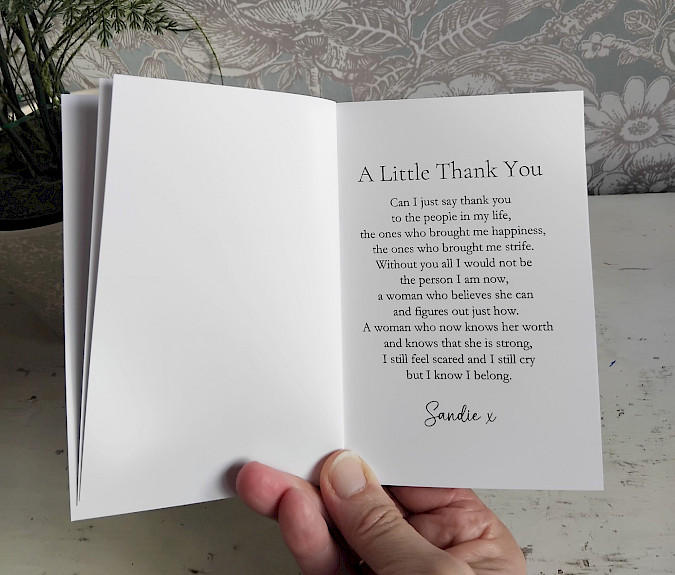 A Little Thank You
Can I just say thank you
to the people in my life,
the ones who brought me happiness,
the ones who brought me strife.
Without you all I would not be
the person I am now,
a woman who believes she can
and figures out just how.
A woman who now knows her worth
and knows that she is strong,
I still feel scared and I still cry
but I know I belong.
Sandie x